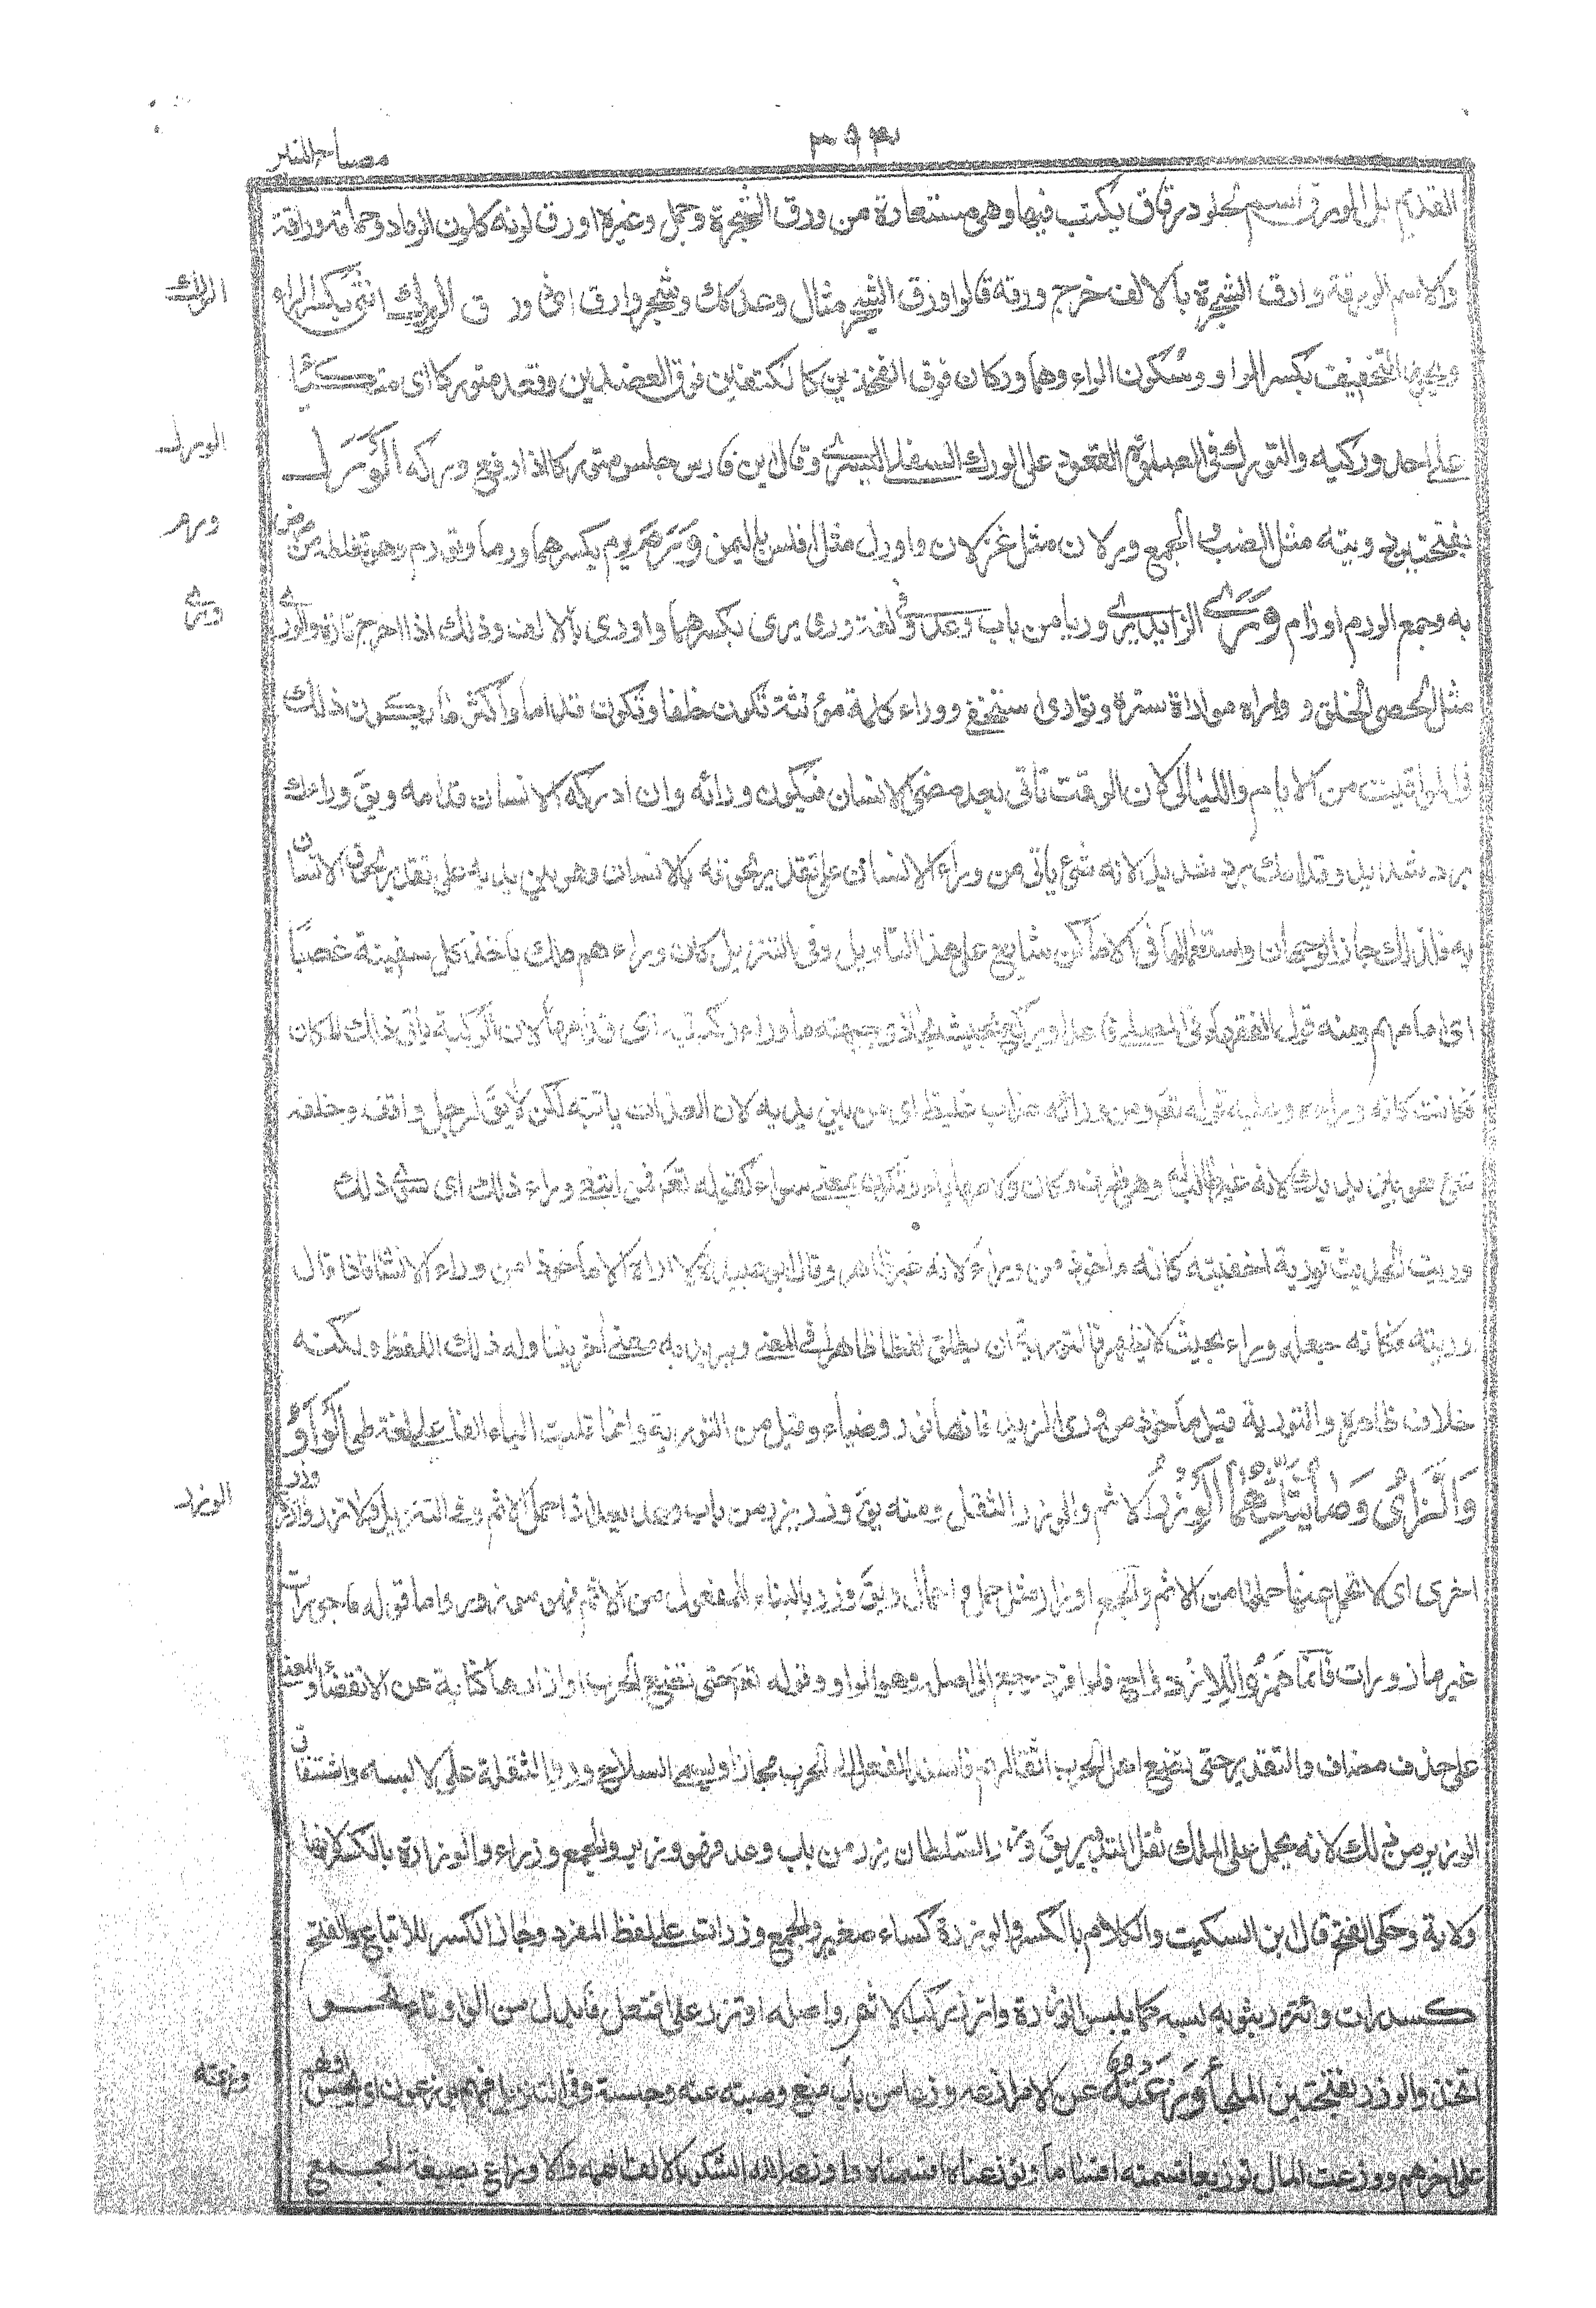 ٣٩٣
مصباح المنير
القديم بل الورق اسم لجلود رقاق يكتب فيها وهى مستعارة من ورق الشجرة وجمل وغيره اورق لونه كلون الرماد وحمامة ورقاء
والاسم الورقة وارق الشجرة بالالف خرج ورقه قالوا ورق الشجر مثال وعد كك وشجر وارق اى ذو ورق الورك انثى بكسر الراء
الورك
ويجوز التخفيف بكسر الواو وسكون الراء وهما وركان فوق الفخذين كالكتفين فوق العضدين وقعد متوركا اى متكئا
على احد وركيه والتورك فى الصلوة القعود على الورك السفلى اليسرى وقال ابن فارس جلس متوركا اذا رفع وركه الورل
الورل
بفتحتين دويبة مثل الضب والجمع ورلان مثل غزلان واورل مثل افلس بالهمز ورم يرم بكسرهما ورما وتورم وهو تغلظ من مرض
ورم
به وجمع الورم اورام ورى الزند يرى وريا من باب وعد وفى لغة ورى يرى بكسرهما واورى بالالف وذلك اذا اخرج ناره والورى
ورى
مثل الحصى الخلق و واراه مواراة ستره وتوارى استخفى ووراء كلمة مؤنثة تكون خلفا وتكون قداما واكثر ما يكون ذلك
فى المواقيت من الايام والليالى لان الوقت تأتى بعد مضى الانسان فيكون ورائه وان ادركه الانسان قدامه ويق ورائك
برد شديد وقدامك برد شديد لانه شئ يأتى من وراء الانسان على تقدير لحوقه بالانسان وهو بين يديه على تقدير لحوق الانسان
به فلذلك جاز الوجهان واستعمالها فى الاماكن شايع على هذا التاويل وفى التنزيل كان وراءهم ملك ياخذ كل سفينة غصبا
اى امامهم ومنه قول الفقهاء فى المصلى قاعدا ويركع بحيث يحاذى جبهته ما وراء ركبتيه اى قدامها لان الركبة يأتى ذلك المكان
فكانت كانه وراءه وعليه قوله تعم ومن ورائه عذاب غليظ اى من بين يديه لان العذاب ياتيه لكن لا يق لرجل واقف وخلفه
شئ هو بين يديك لانه غير طالب له وهى ظرف مكان وتكون بمعنى سواء كقوله تعم فمن ابتغى وراء ذلك اى سوى ذلك
وريت الحديث تورية اخفيته كانه ماخوذ من وراء لانه غير ظاهر وقال ابو عبيد لا اراه الا ماخوذا من وراء الانسان فاذا قال
وريته فكانه جعله وراءه بحيث لا يظهر فالتورية ان يطلق لفظا ظاهرا فى المعنى ويريد به معنى اخر يتناوله ذلك اللفظ ولكنه
خلاف ظاهره والتورية قيل ماخوذ من ورى الزند فانها نور وضياء وقيل من التورية وانما قلبت الياء الفا على لغة طى الواو
والزاى وما يثلثهما الوزر الاثم والوزر الثقل ومنه يق وزر يزر من باب وعد يعد اذا حمل الاثم وفى التنزيل ولا تزر وازرة وزر
الوزر
اخرى اى لا تحمل عنها حملها من الاثم والجمع اوزار مثل حمل واحمال ويق وزر بالبناء للمفعول من الاثم فهو موزور واما قوله مأجورات
غير مازورات فانما همز للازدواج فلوا فرد رجع الى اصله وهو الواو وقوله تعم حتى تضع الحرب اوزارها كناية عن الانقضاء والمعنى
على حذف مضاف والتقدير حتى تضع اهل الحرب اثقالهم فاسند الفعل الى الحرب مجازا ويسمى السلاح وزرا لثقلة على لابسه واشتقاق
الوزير من ذلك لانه يحمل على الملك ثقل التدبير يق وزر السلطان يزر من باب وعد فهو وزير والجمع وزراء والوزارة بالكسر لانها
ولاية وحكى الفتح قال ابن السكيت والكلام بالكسر والوزرة كساء صغير والجمع وزرات على لفظ المفرد وجاز الكسر للاتباع والفتح
كسدرات واتزر بثوبه لبسه كما يلبس الوزرة واتزر ركب الاثم واصله اوتزر على افتعل فابدل من الواو تاء نحو
اتخذ والوزر بفتحتين الملجأ وزعته عن الامر ازعه وزعا من باب منع وصبته عنه وحبسة وفى التنزيل فهم يوزعون اى يحبس اولهم
وزعته
على اخرهم ووزعت المال توزيعا قسمته اقساما وتوزعناه اقتسمناه واوزعه الله الشكر بالالف الهمه والاوزاع بصيغة الجمع